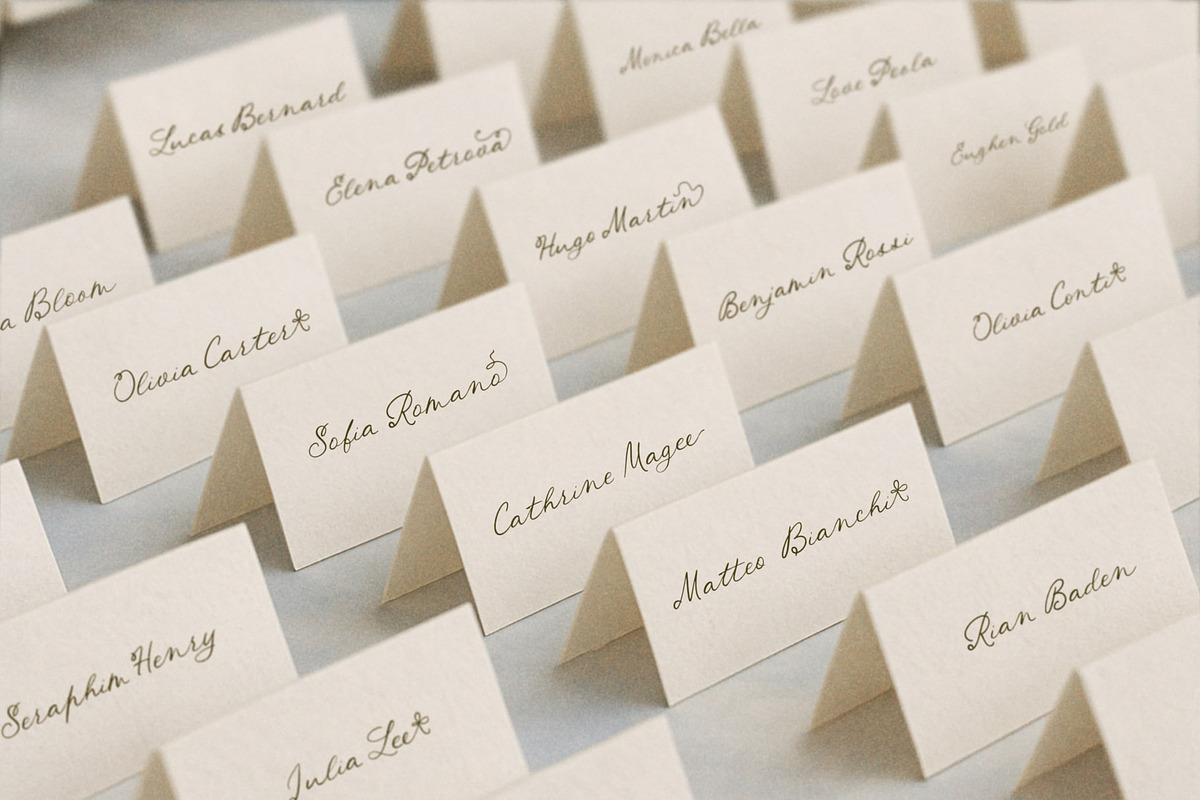 Monica Bella
Love Peola
Lucas Bernard
Elena Petrova
Eughen Gold
Hugo Martin
Benjamin Rossi
a Bloom
Olivia Carter
Olivia Conti
Sofia Romano
Cathrine Magee
Matteo Bianchi
Rian Baden
Seraphim Henry
Julia Lee